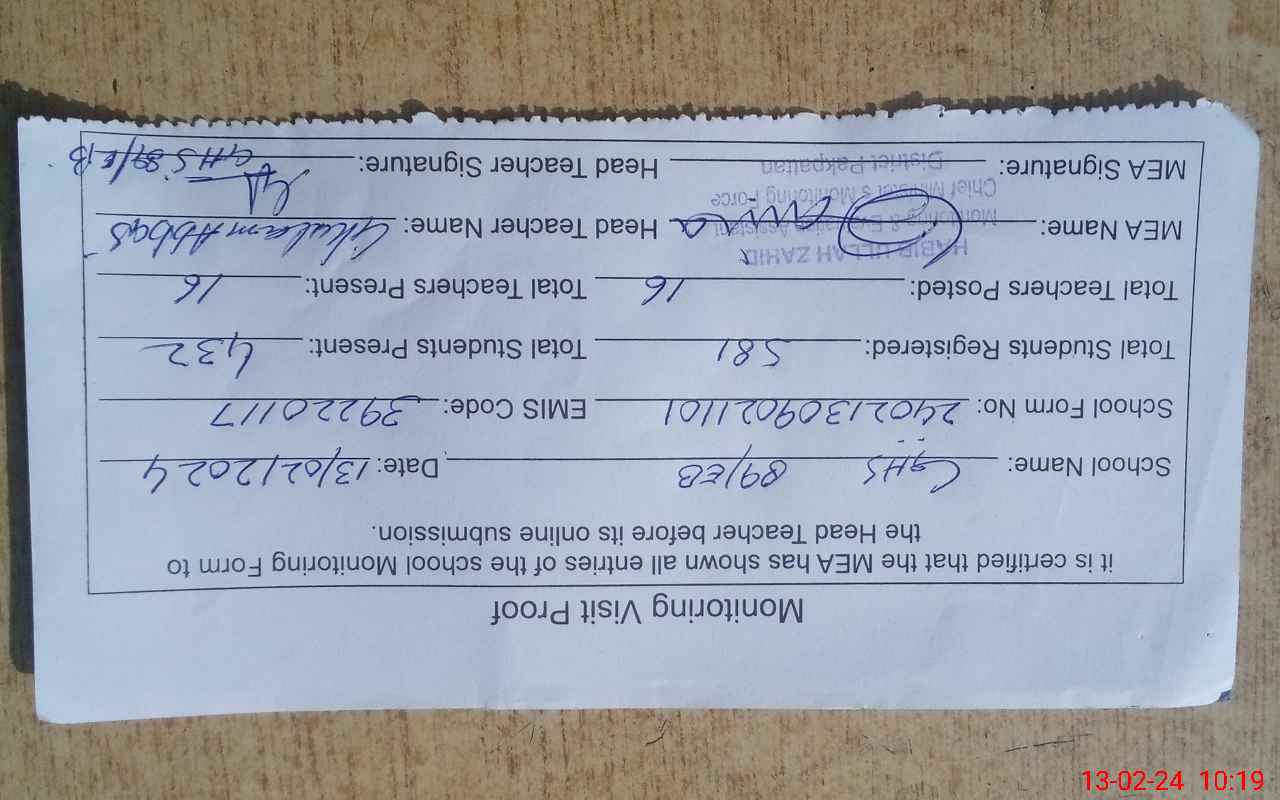 Monitoring Visit Proof
it is certified that the MEA has shown all entries of the school Monitoring Form to
the Head Teacher before its online submission.
School Name: GHS 89/EB Date: 13/02/2024
School Form No: 24021309021101 EMIS Code: 39220117
Total Students Registered: 581 Total Students Present: 432
Total Teachers Posted: 16 Total Teachers Present: 16
HABIB ULLAH ZAHID
MEA Name: Head Teacher Name: Ghulam Abbas
Monitoring & Evaluation Assistant
Chief Minister's Monitoring Force
District Pakpattan
MEA Signature: Head Teacher Signature: GHS 89/EB
13-02-24 10:19